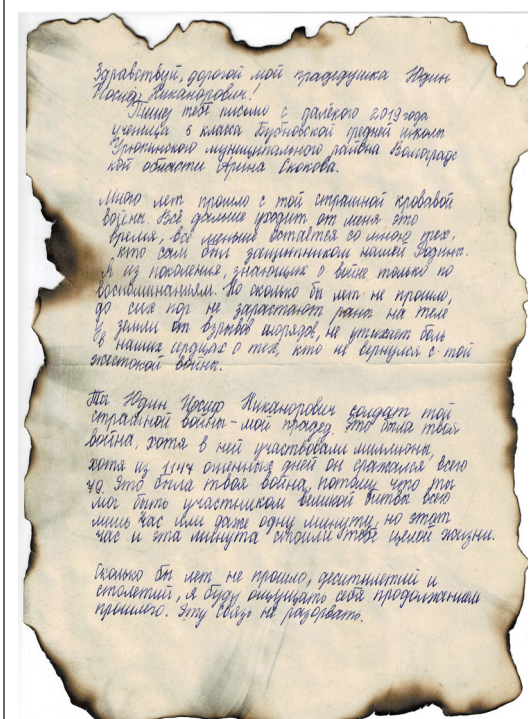 Здравствуй, дорогой мой прадедушка Юдин
Иосиф Никанорович!
Пишет тебе письмо с далёкого 2019 года
ученица 6 класса Бубновской средней школы
Урюпинского муниципального района Волгоград
кой области Арина Скокова.
Много лет прошло с той страшной кровавой
войны. Всё дальше уходит от меня это
время, всё меньше остаётся со мной тех,
кто сам был защитником нашей Родины.
Я из поколения, знающих о войне только по
воспоминаниям. Но сколько бы лет не прошло,
до сих пор не зарастают раны на теле
у земли от взрывов снарядов, не утихает боль
в наших сердцах о тех, кто не вернулся с той
жестокой войны.
Ты Юдин Иосиф Никанорович солдат той
страшной войны - мой прадед. Это была твоя
война, хотя в ней участвовали миллионы,
хотя из 1147 огненных дней он сражался всего
70. Это была твоя война, потому что ты
мог быть участником великой битвы всего
лишь час или даже одну минуту, но этот
час и эта минута стоили тебе целой жизни.
Сколько бы лет не прошло, десятилетий и
столетий, я буду ощущать себя продолжением
прошлого. Эту связь не разорвать.